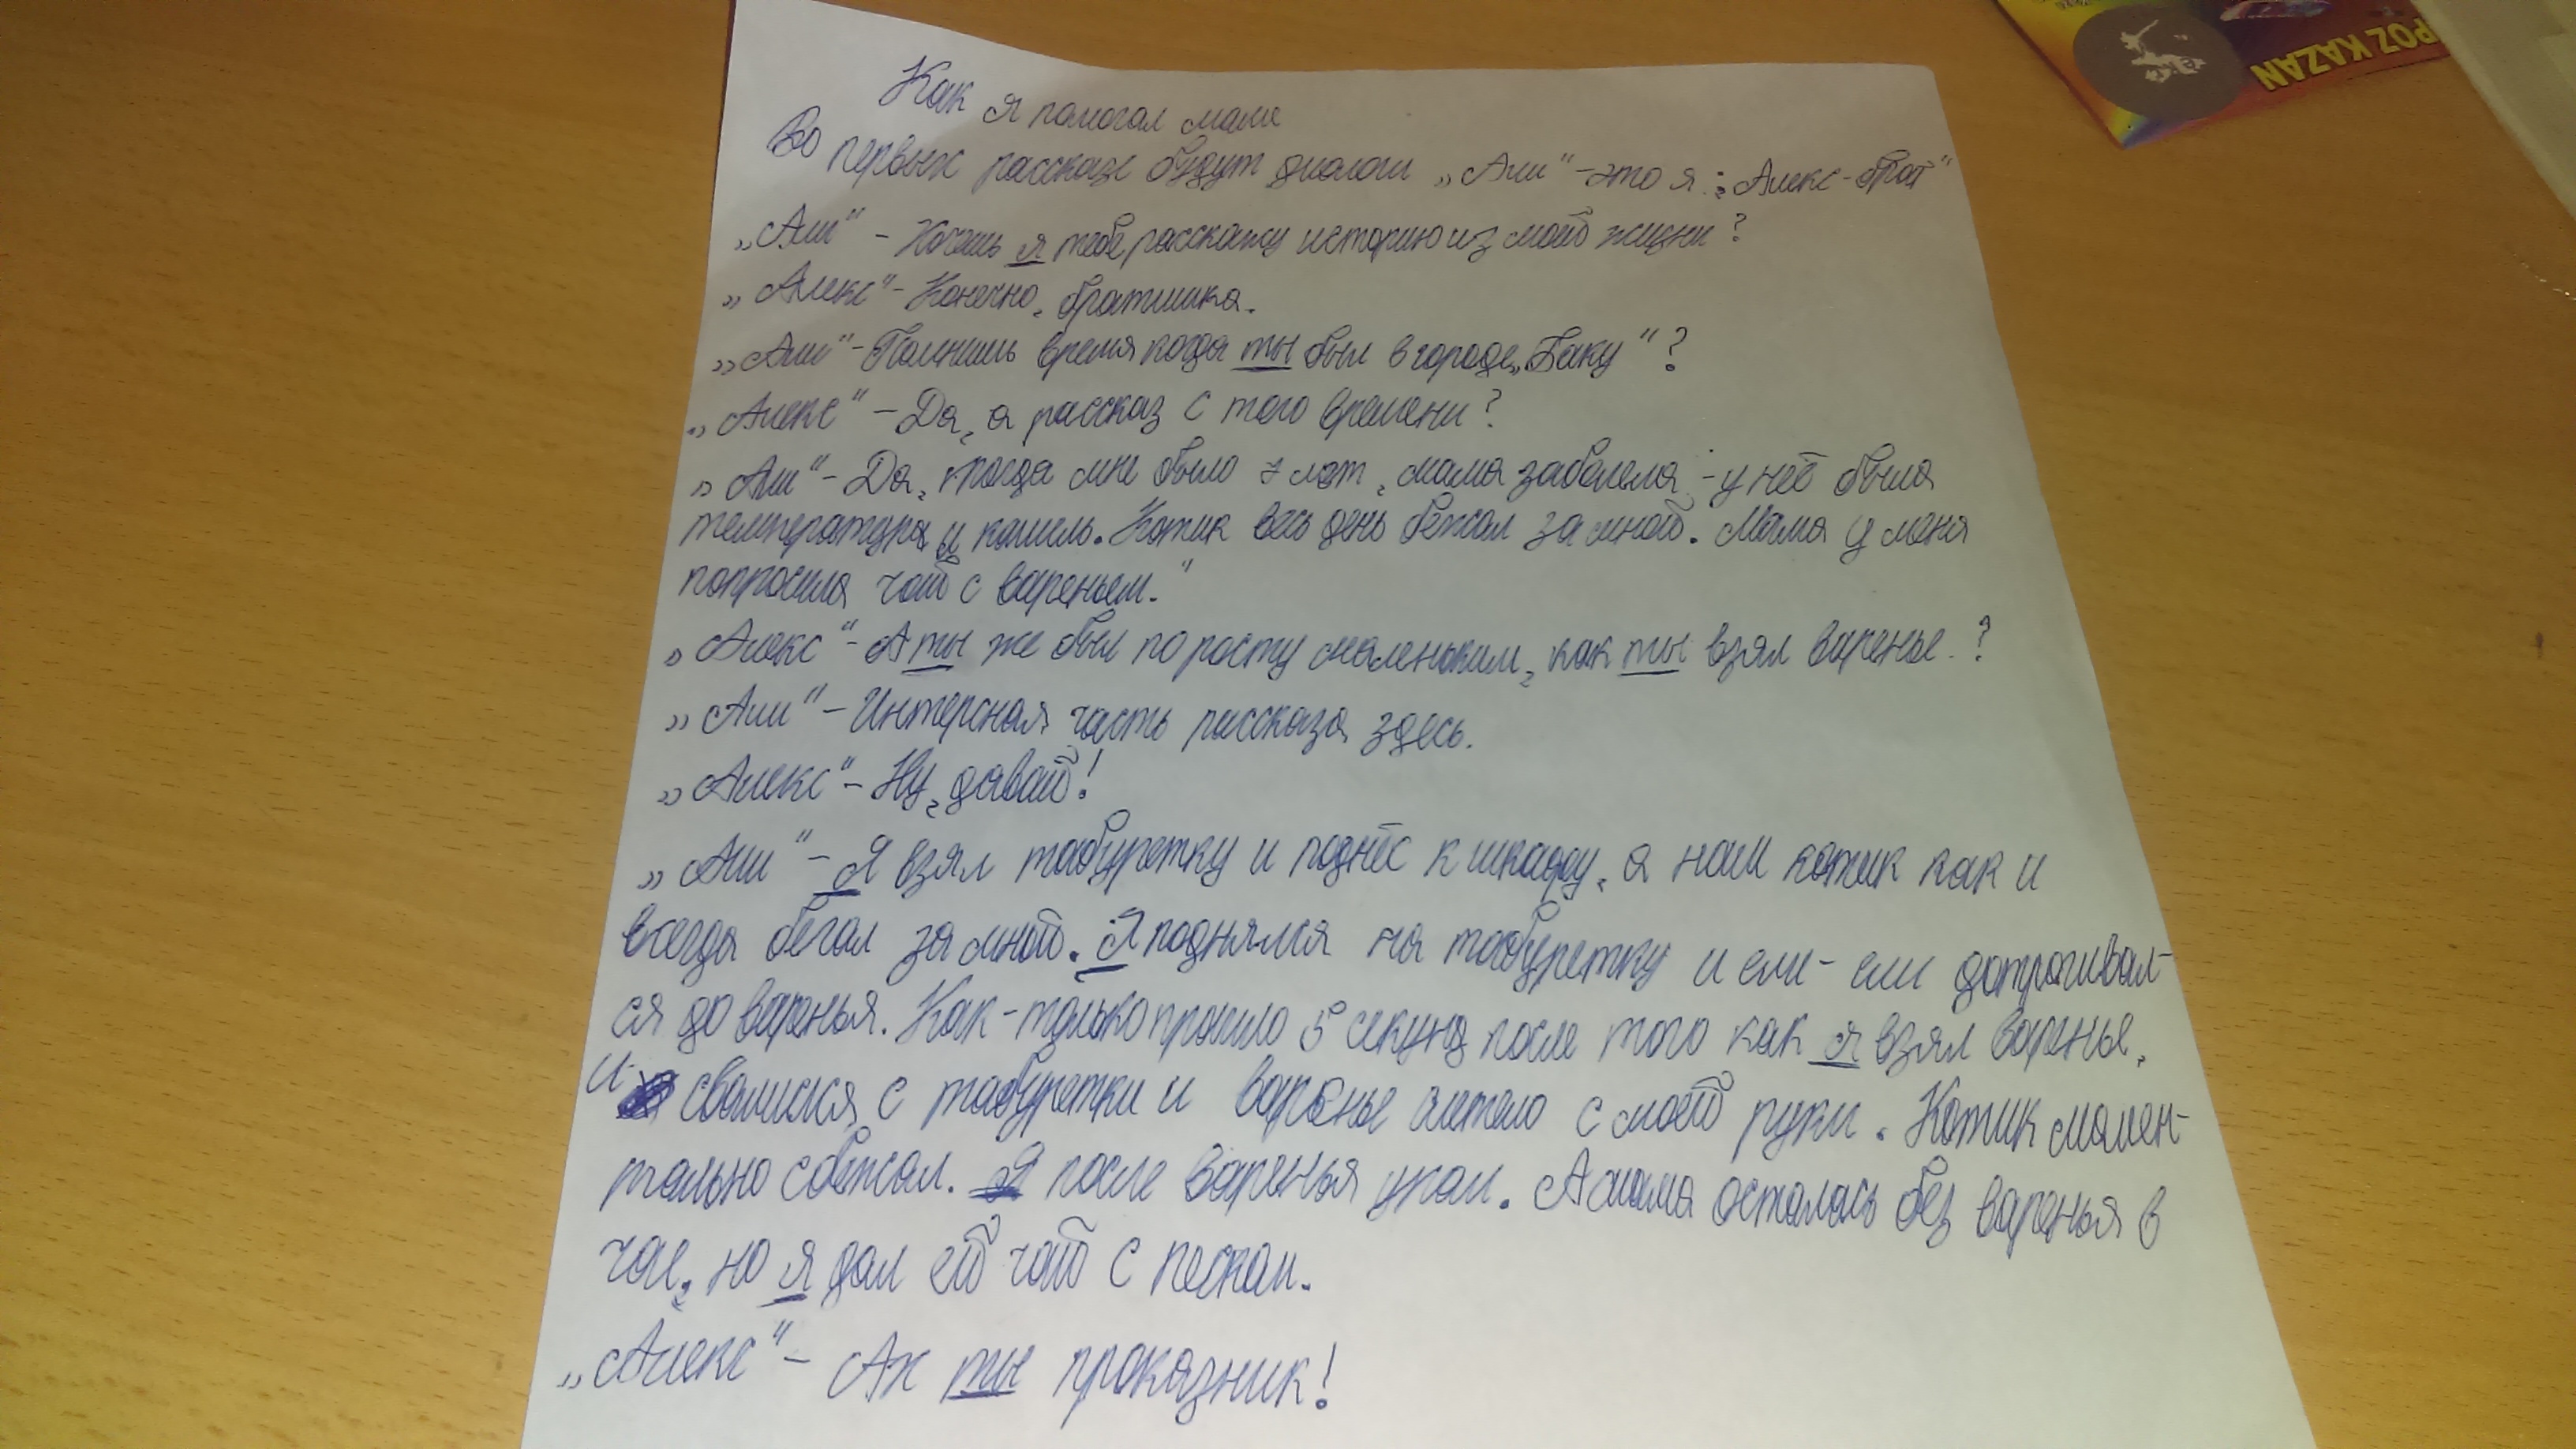 POZ KAZAN
Как я помогал маме
Во первых рассказе будут диалоги „Али“ - это я ; Алекс - брат“
„Али“ - Хочешь я тебе расскажу историю из моей жизни?
„Алекс“ - Конечно, братишка.
„Али“ - Помнишь время когда ты был в городе „Баку“?
„Алекс“ - Да, а рассказ с того времени?
„Али“ - Да, тогда мне было 7 лет, мама заболела - у неё была
температура и кашель. Котик весь день бежал за мной. Мама у меня
попросила чай с вареньем."
„Алекс“ - А ты же был по росту маленьким, как ты взял варенье.?
„Али“ - Интерсная часть рассказа здесь.
„Алекс“ - Ну, давай!
„Али“ - Я взял табуретку и поднёс к шкафу, а наш котик как и
всегда бегал за мной. Я поднялся на табуретку и ели-ели дотрагивал-
ся до варенья. Как-только прошло 5 секунд после того как я взял варенье,
и свалился с табуретки и варенье летело с моей руки. Котик момен-
тально сбежал. Я после варенья упал. А мама осталась без варенья в
чае, но я дал ей чай с песком.
„Алекс“ - Ах ты проказник!